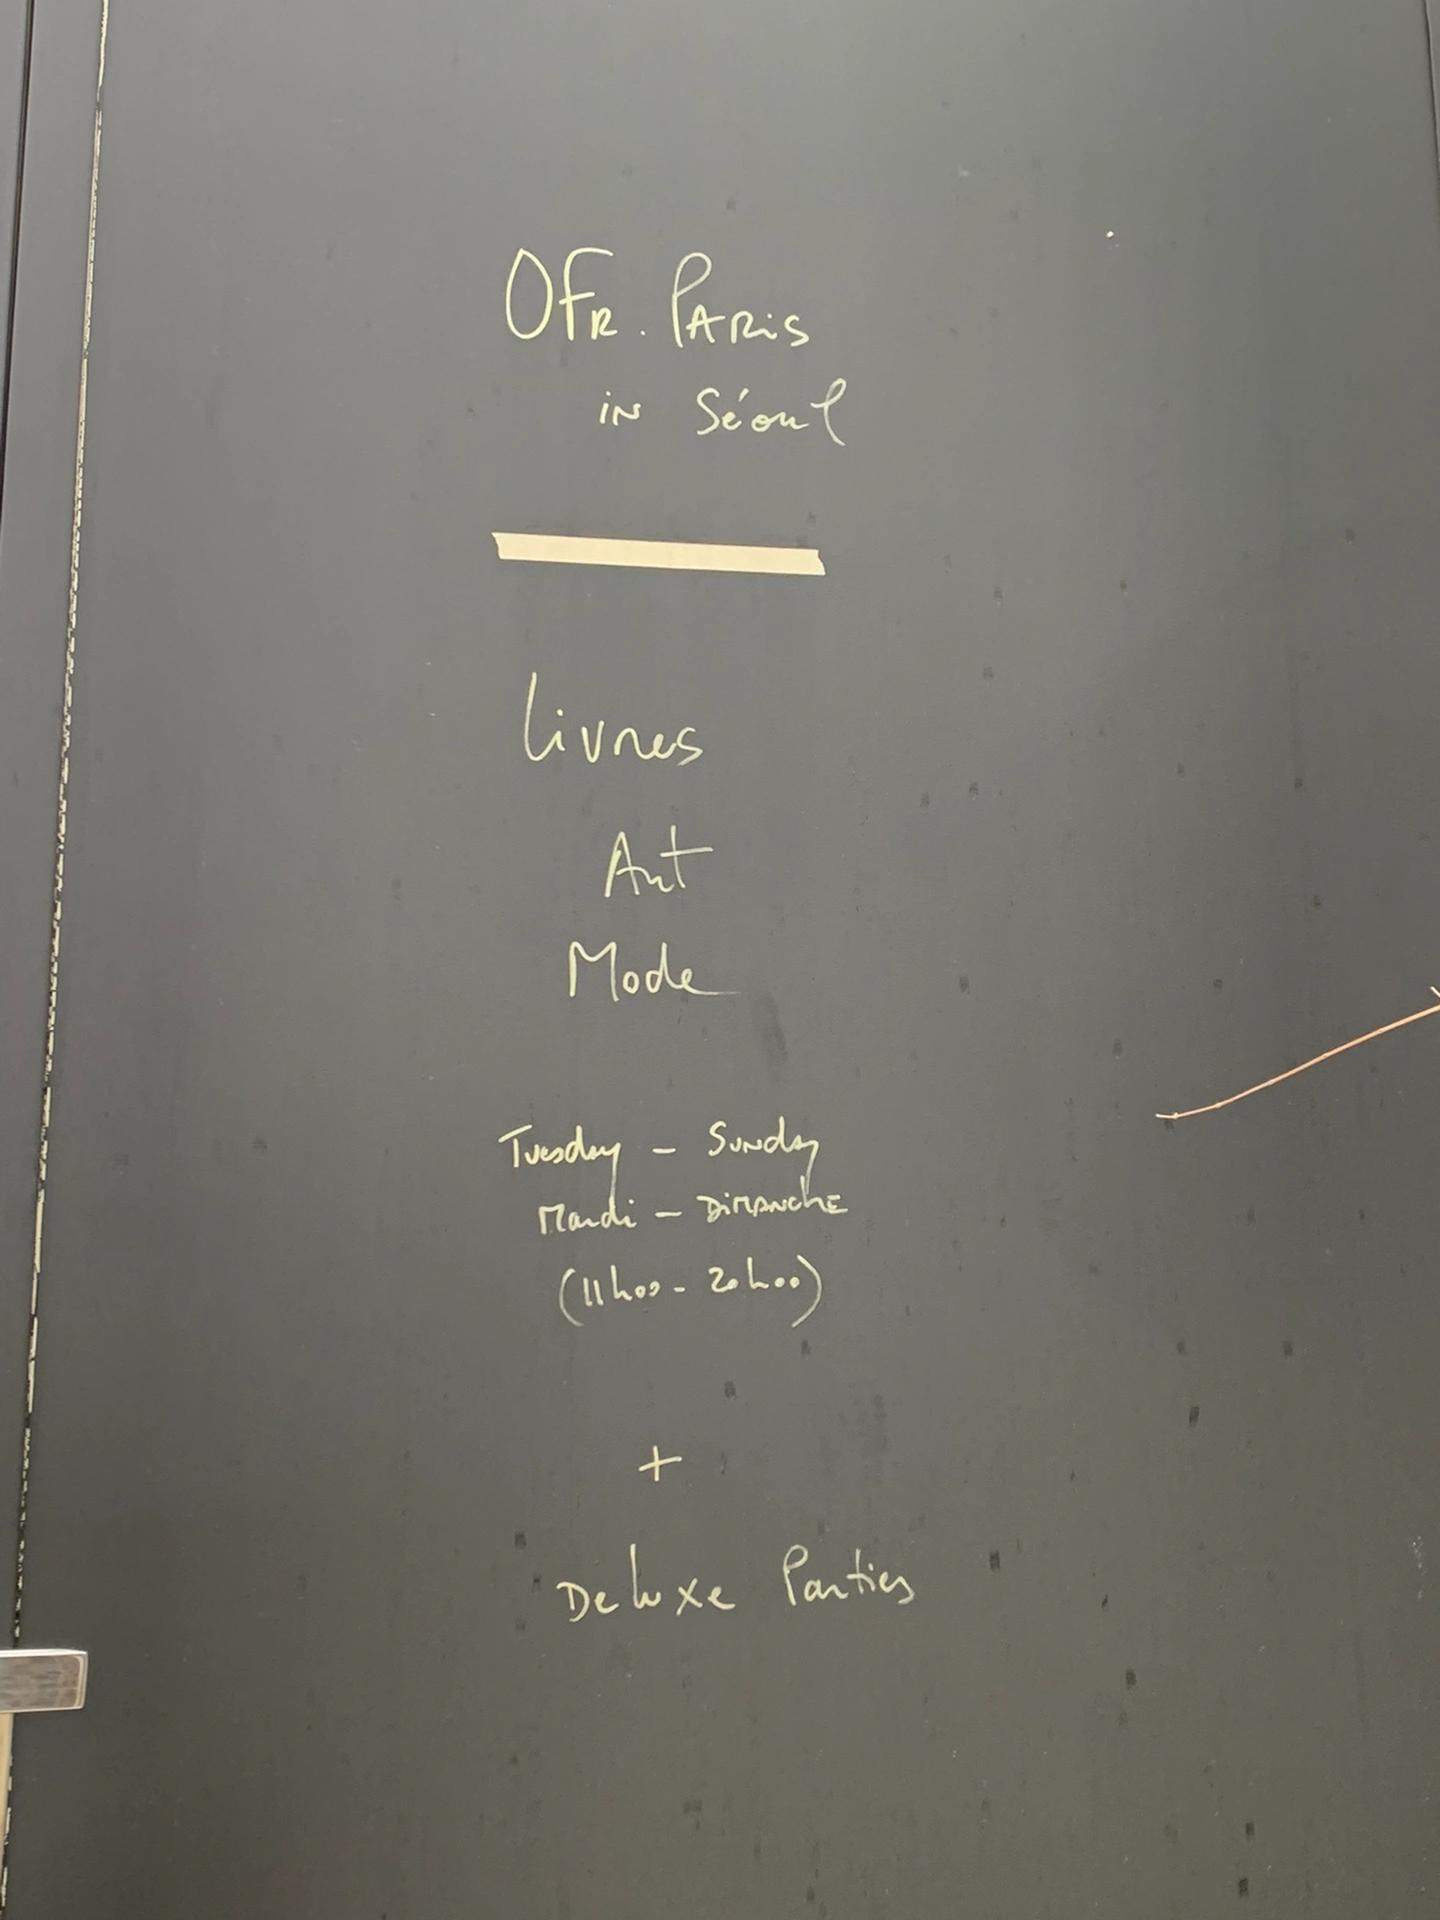 OFR. PARIS
in Séoul
Livres
Art
Mode
Tuesday - Sunday
Mardi - DIMANCHE
(11h00 - 20h00)
+
Deluxe Parties